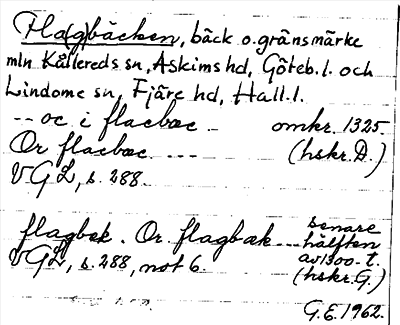 Fla(g)bäcken, bäck o. gränsmärke
mln Kållereds sn, Askims hd, Göteb. l. och
Lindome sn, Fjäre hd, Hall. l.
-- oc i flacbæc - omkr. 1325.
Or flacbæc. --- (hskr. D.)
VGL, s. 288.
flagbek. Or flagbæk -- senare hälften
VGL, s. 288, not 6. av 1300-t.
(hskr. G.)
G.E. 1962.